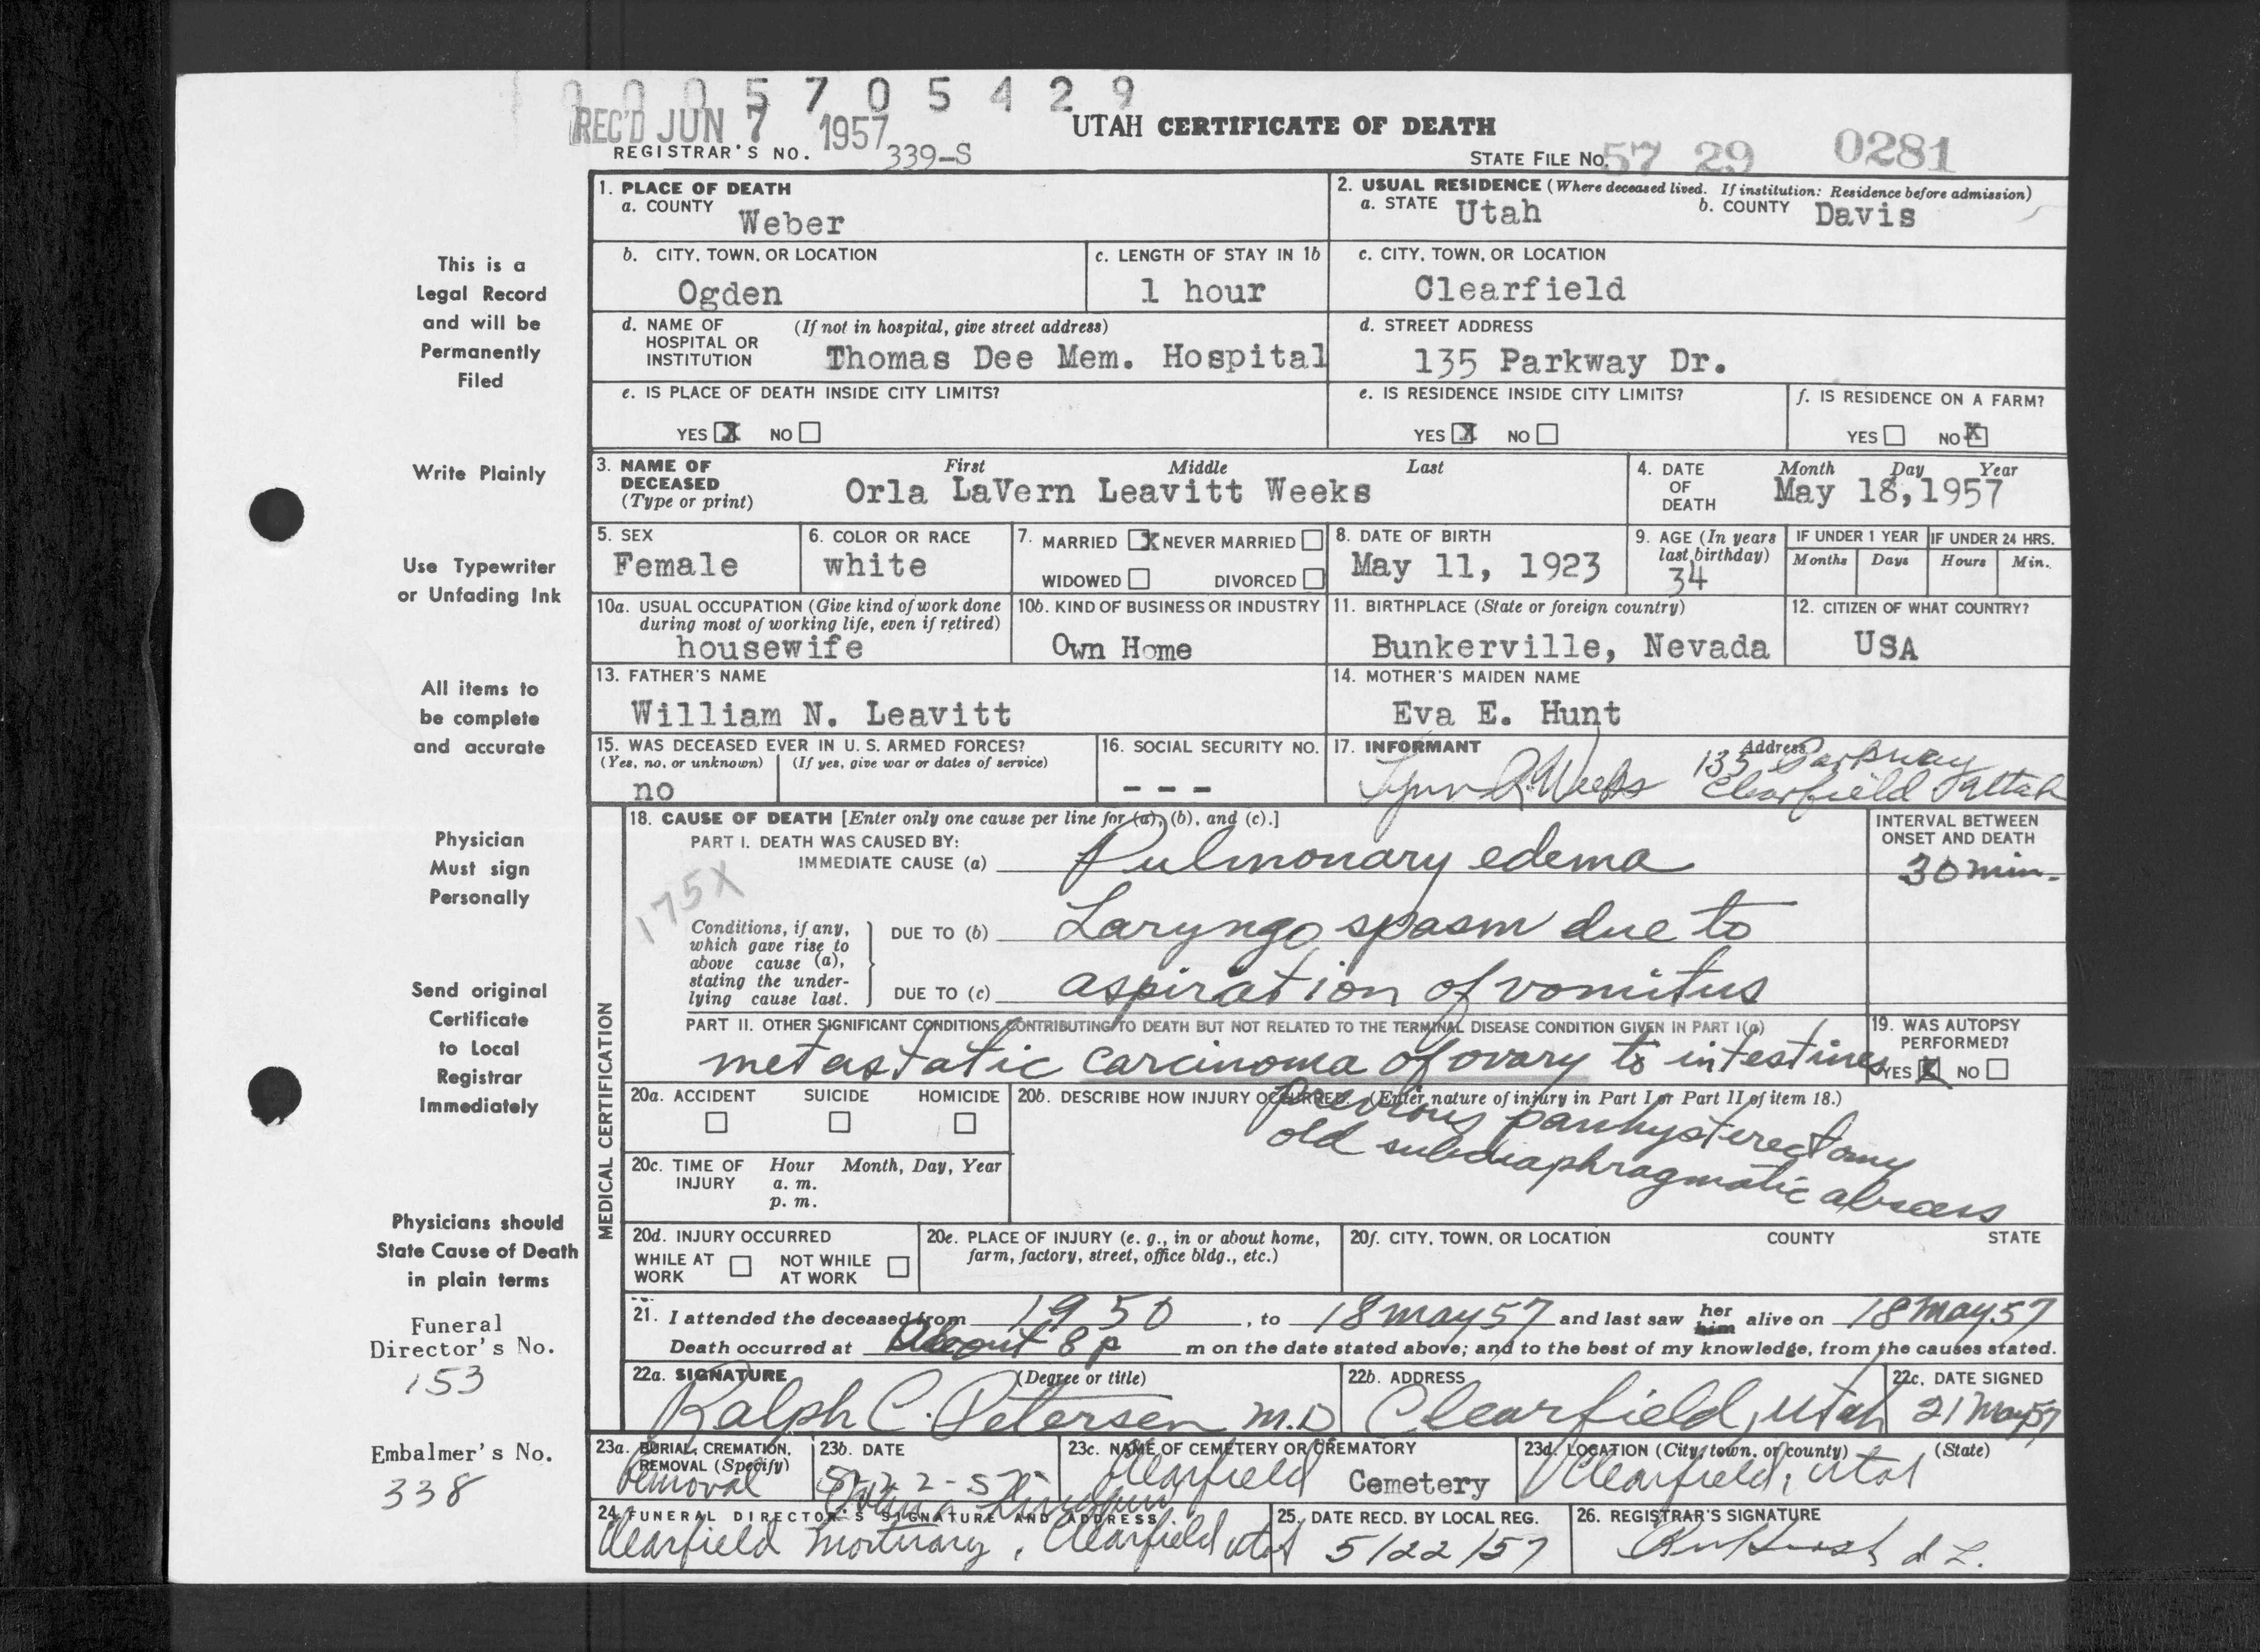 0005705429
REC'D JUN 7 1957
UTAH CERTIFICATE OF DEATH
REGISTRAR'S NO. 339-S
STATE FILE NO. 57 29 0281
1. PLACE OF DEATH
a. COUNTY Weber
2. USUAL RESIDENCE (Where deceased lived. If institution: Residence before admission)
a. STATE Utah b. COUNTY Davis
b. CITY, TOWN, OR LOCATION Ogden
c. LENGTH OF STAY IN 1b 1 hour
c. CITY, TOWN, OR LOCATION Clearfield
d. NAME OF HOSPITAL OR INSTITUTION (If not in hospital, give street address) Thomas Dee Mem. Hospital
d. STREET ADDRESS 135 Parkway Dr.
e. IS PLACE OF DEATH INSIDE CITY LIMITS?
YES X NO
e. IS RESIDENCE INSIDE CITY LIMITS?
YES X NO
f. IS RESIDENCE ON A FARM?
YES NO X
3. NAME OF DECEASED (Type or print)
First Middle Last
Orla LaVern Leavitt Weeks
4. DATE OF DEATH
Month Day Year
May 18, 1957
5. SEX Female
6. COLOR OR RACE white
7. MARRIED X NEVER MARRIED
WIDOWED DIVORCED
8. DATE OF BIRTH May 11, 1923
9. AGE (In years last birthday) 34
IF UNDER 1 YEAR Months Days
IF UNDER 24 HRS. Hours Min.
10a. USUAL OCCUPATION (Give kind of work done during most of working life, even if retired) housewife
10b. KIND OF BUSINESS OR INDUSTRY Own Home
11. BIRTHPLACE (State or foreign country) Bunkerville, Nevada
12. CITIZEN OF WHAT COUNTRY? USA
13. FATHER'S NAME William N. Leavitt
14. MOTHER'S MAIDEN NAME Eva E. Hunt
15. WAS DECEASED EVER IN U. S. ARMED FORCES?
(Yes, no, or unknown) (If yes, give war or dates of service)
no
16. SOCIAL SECURITY NO. - - -
17. INFORMANT Lynn R. Weeks
Address 135 Parkway
Clearfield Utah
MEDICAL CERTIFICATION
18. CAUSE OF DEATH [Enter only one cause per line for (a), (b), and (c).]
PART I. DEATH WAS CAUSED BY:
IMMEDIATE CAUSE (a) Pulmonary edema
INTERVAL BETWEEN ONSET AND DEATH
30 min.
175X
Conditions, if any, which gave rise to above cause (a), stating the underlying cause last.
DUE TO (b) Laryngo spasm due to
DUE TO (c) aspiration of vomitus
PART II. OTHER SIGNIFICANT CONDITIONS CONTRIBUTING TO DEATH BUT NOT RELATED TO THE TERMINAL DISEASE CONDITION GIVEN IN PART I(a)
metastatic carcinoma of ovary to intestines
19. WAS AUTOPSY PERFORMED?
YES X NO
20a. ACCIDENT SUICIDE HOMICIDE
20b. DESCRIBE HOW INJURY OCCURRED. (Enter nature of injury in Part I or Part II of item 18.)
previous panhysterectomy
old subdiaphragmatic abscess
20c. TIME OF INJURY Hour Month, Day, Year
a. m.
p. m.
20d. INJURY OCCURRED
WHILE AT WORK NOT WHILE AT WORK
20e. PLACE OF INJURY (e. g., in or about home, farm, factory, street, office bldg., etc.)
20f. CITY, TOWN, OR LOCATION COUNTY STATE
21. I attended the deceased from 1950, to 18 May 57 and last saw her him alive on 18 May 57
Death occurred at About 8 p m on the date stated above; and to the best of my knowledge, from the causes stated.
22a. SIGNATURE (Degree or title)
Ralph C. Petersen M.D
22b. ADDRESS Clearfield, Utah
22c. DATE SIGNED 21 May 57
23a. BURIAL, CREMATION, REMOVAL (Specify) Removal
23b. DATE 5-22-57
23c. NAME OF CEMETERY OR CREMATORY Clearfield Cemetery
23d. LOCATION (City, town, or county) (State)
Clearfield, Utah
24. FUNERAL DIRECTOR'S SIGNATURE AND ADDRESS
Clearfield Mortuary, Clearfield Utah
25. DATE RECD. BY LOCAL REG. 5/22/57
26. REGISTRAR'S SIGNATURE
This is a
Legal Record
and will be
Permanently
Filed
Write Plainly
Use Typewriter
or Unfading Ink
All items to
be complete
and accurate
Physician
Must sign
Personally
Send original
Certificate
to Local
Registrar
Immediately
Physicians should
State Cause of Death
in plain terms
Funeral
Director's No.
153
Embalmer's No.
338